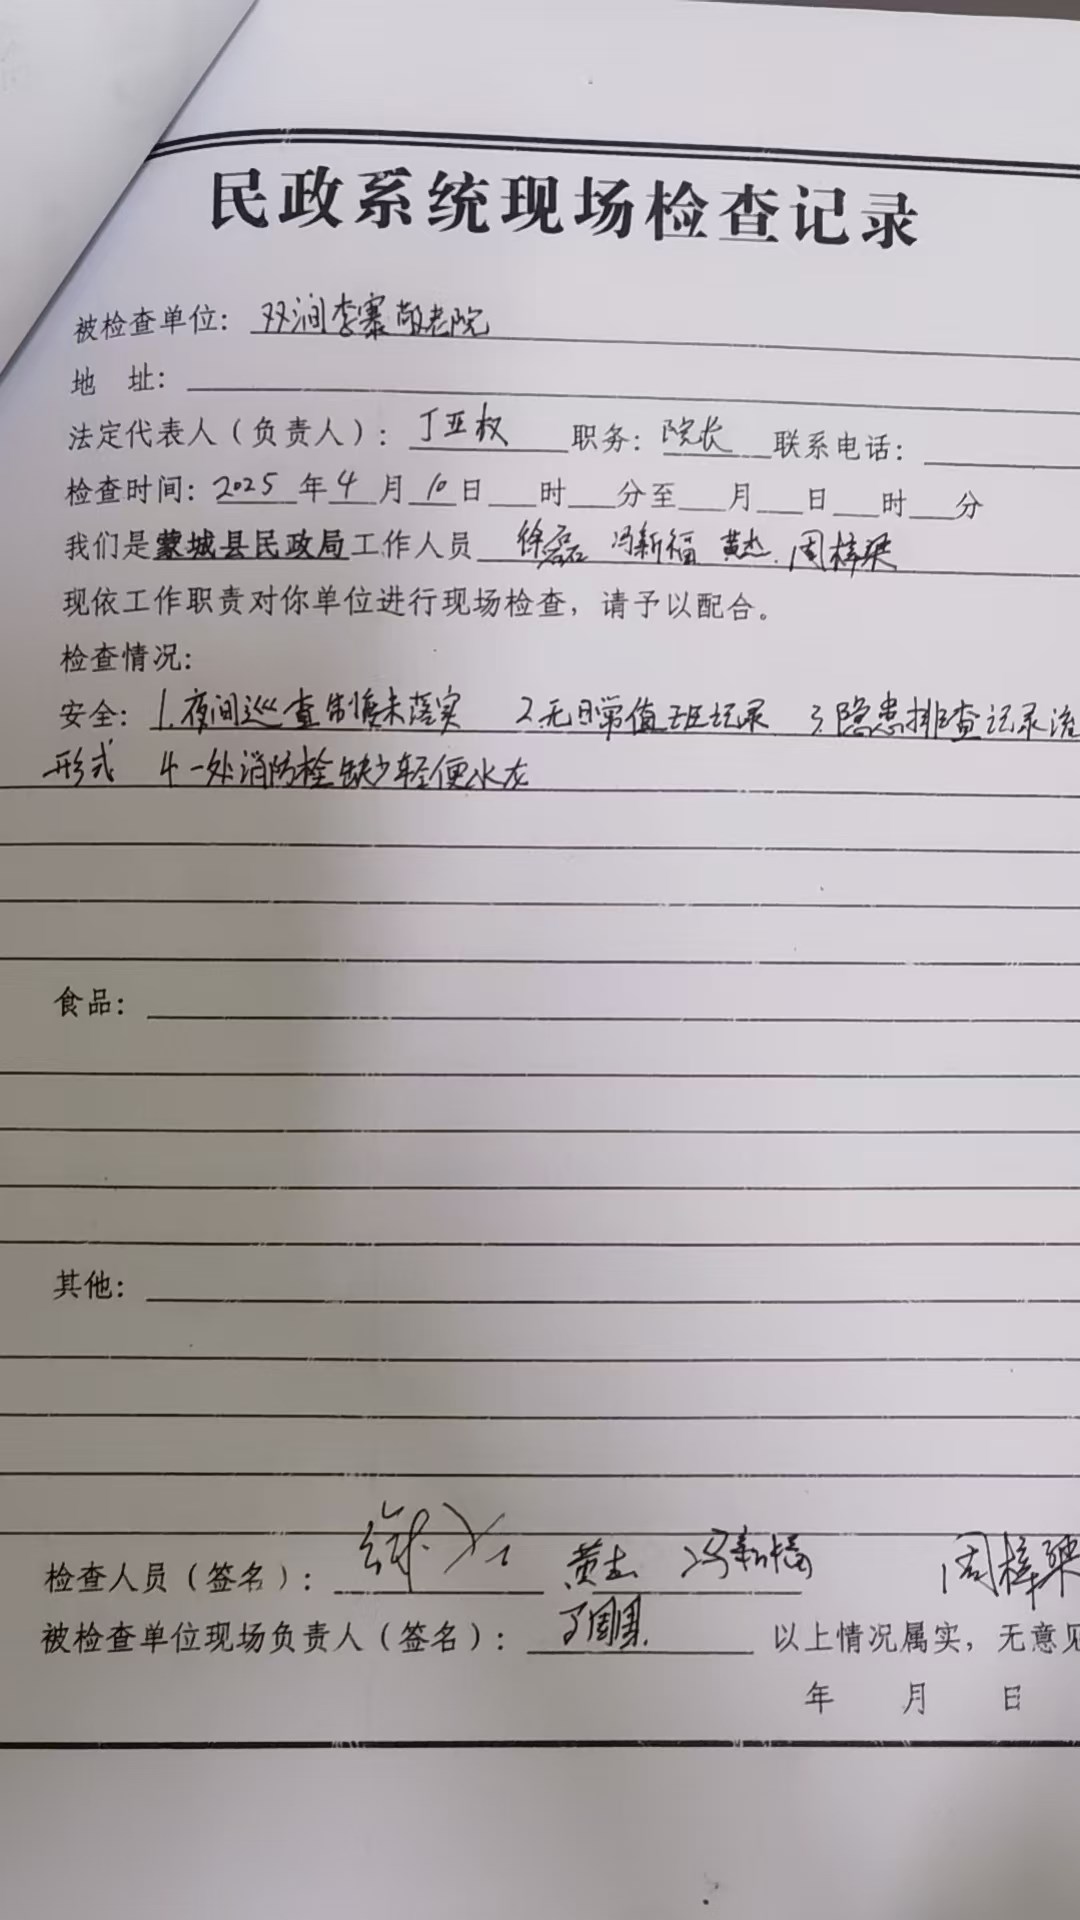 民政系统现场检查记录
被检查单位：双涧李寨敬老院
地 址：
法定代表人（负责人）：丁亚权 职务：院长 联系电话：
检查时间：2025年4月10日 时 分至 月 日 时 分
我们是蒙城县民政局工作人员 徐磊 冯新福 黄杰 周梓梁
现依工作职责对你单位进行现场检查，请予以配合。
检查情况：
安全：1.夜间巡查制度未落实 2.无日常值班记录 3.隐患排查记录流
形式 4.一处消防栓缺少轻便水龙
食品：
其他：
检查人员（签名）： 黄杰 冯新福 周梓梁
被检查单位现场负责人（签名）： 以上情况属实，无意见
年 月 日